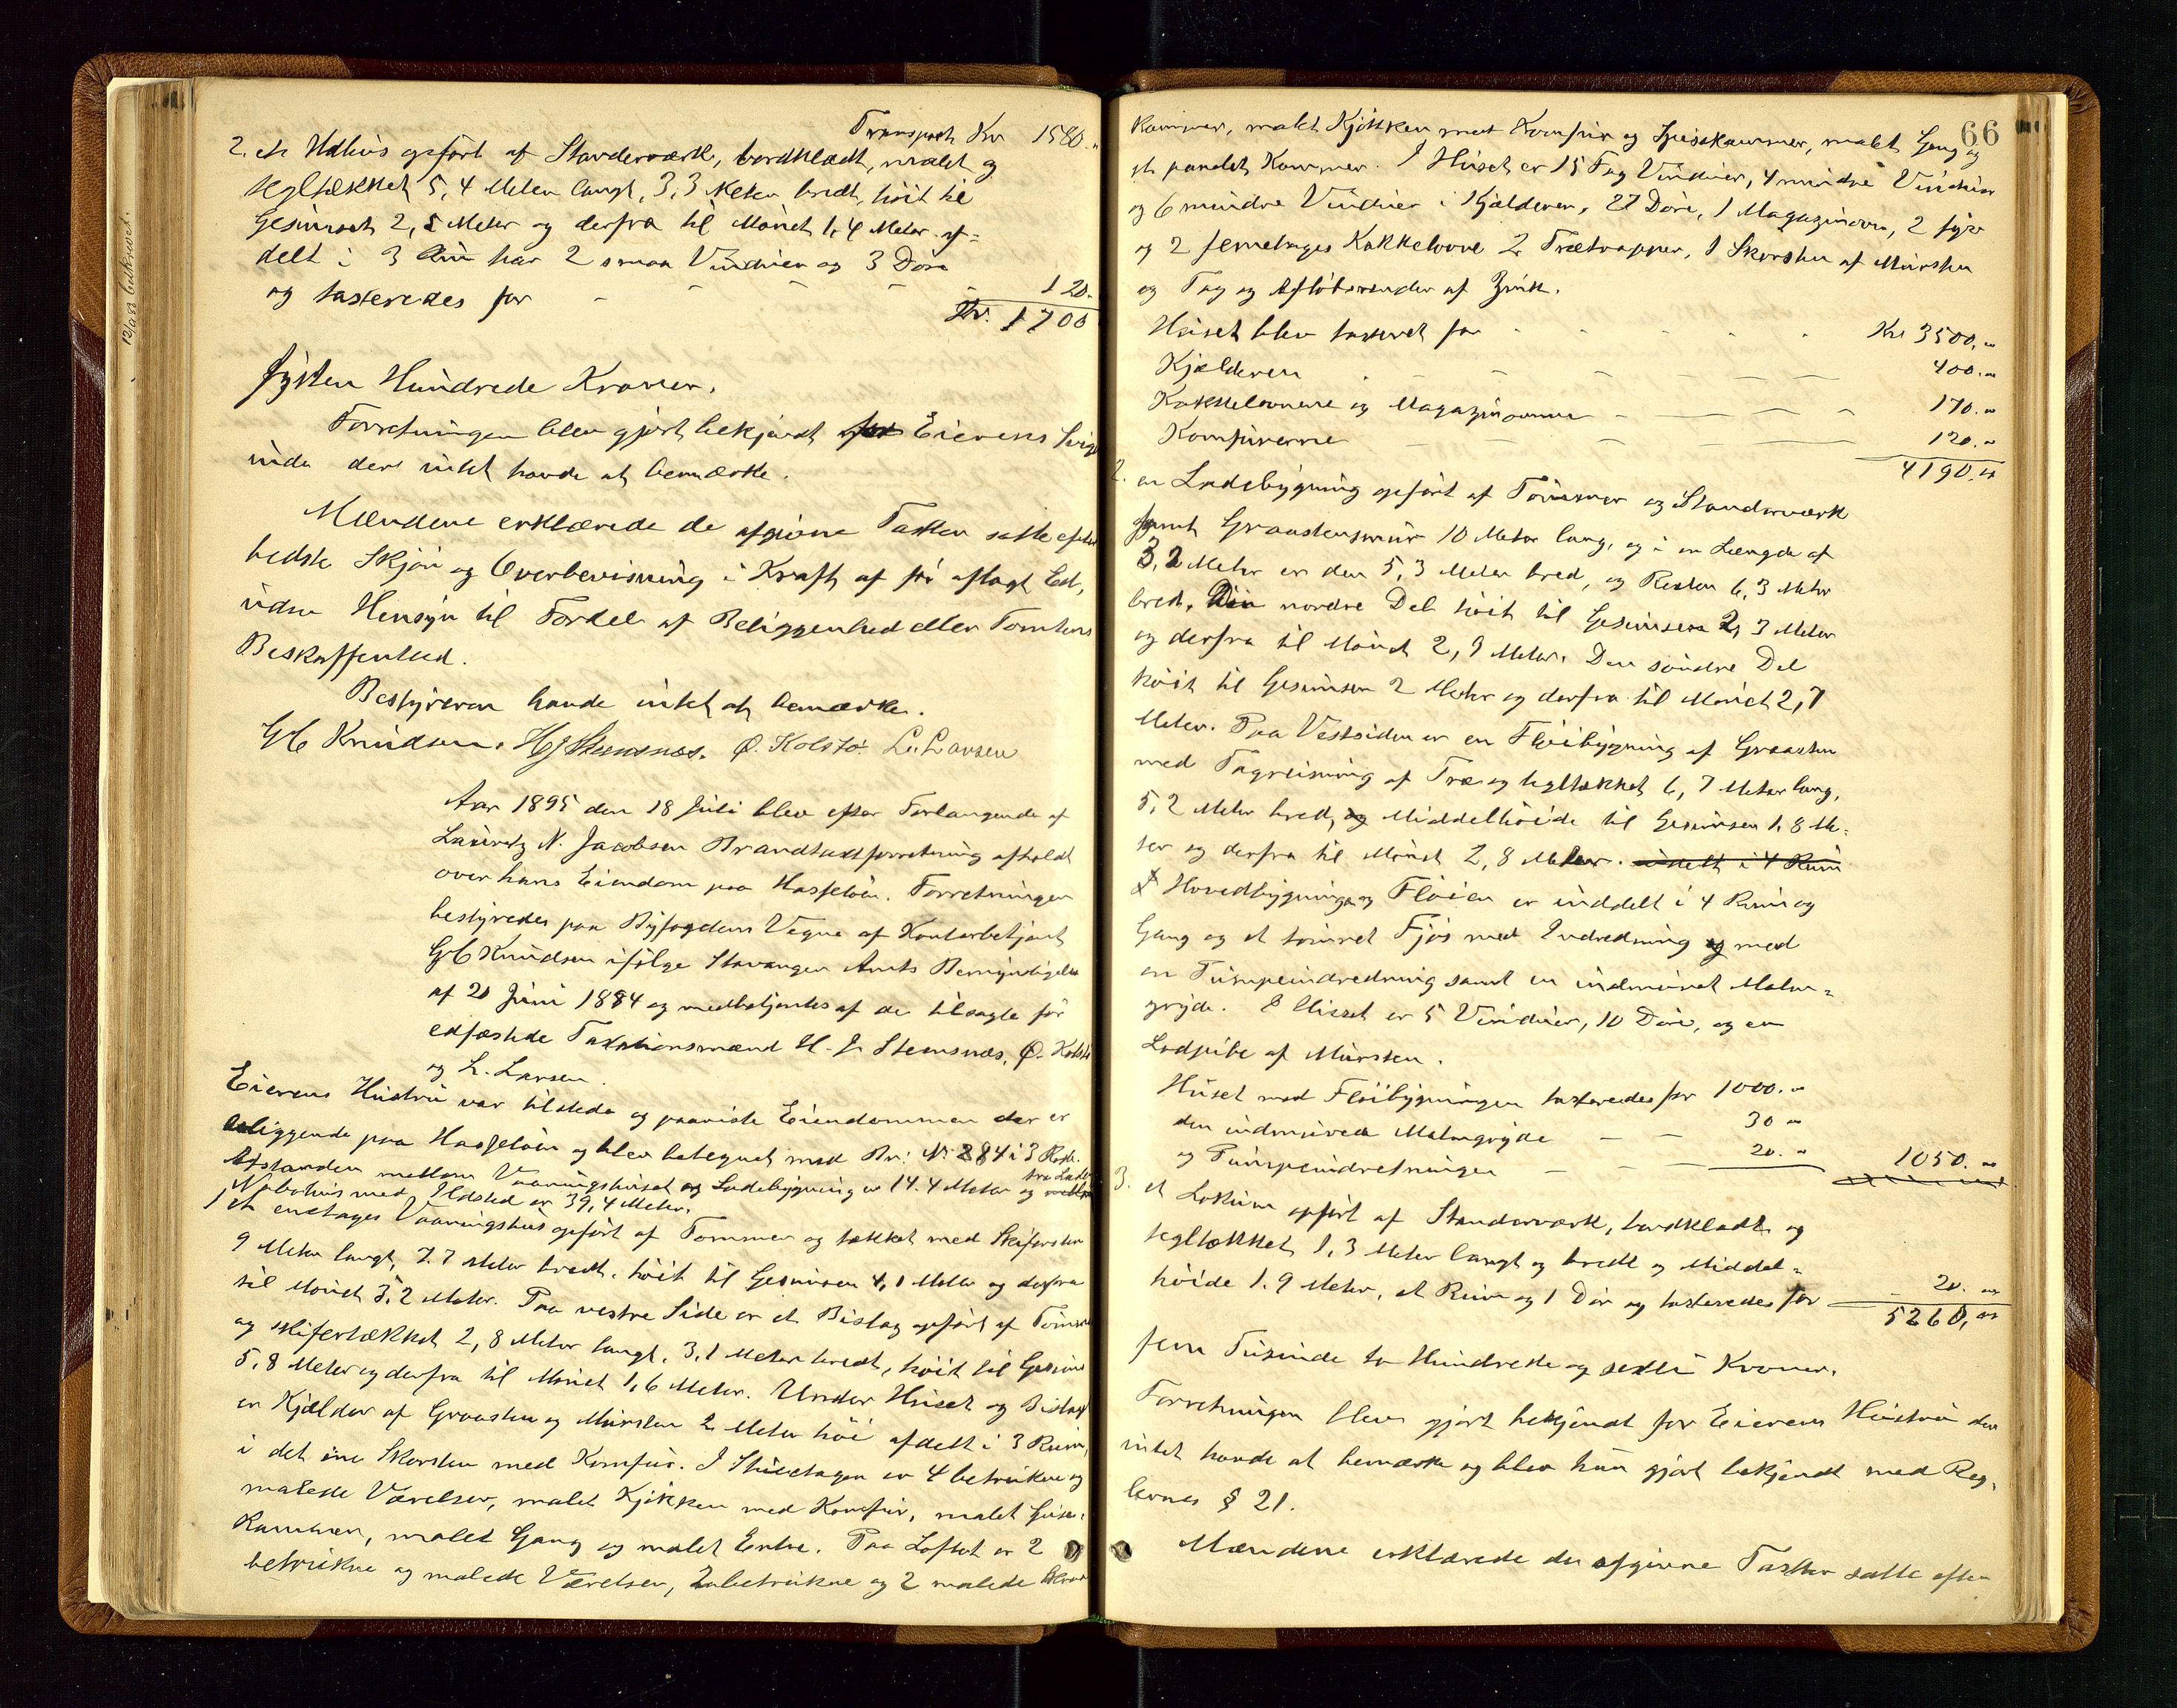 Transport Kr 1580.„
2. et Udhus opført af Standerværk, bordklædt, malet og
tegltækket 5,4 Meter langt, 3,3 Meter bredt, høit til
Gesimset 2,5 Meter og derfra til Mønet 1,4 Meter af=
delt i 3 Rum har 2 smaa Vinduer og 3 Døre
og taxeredes for - - - - - 120.
Kr. 1700
sytten Hundrede Kroner.
Forretningen blev gjort bekjendt for Eierens Svige
inde der intet havde at bemærke.
Mændene erklærede de afgivne Taxter satte efter
bedste Skjøn og Overbevisning i Kraft af før aflagt Ed,
uden Hensyn til Fordel af Beliggenhed eller Tomtens
Beskaffenhed.
Bestyreren havde intet at bemærke.
GC Knudsen. HJ Stemsnæs. Ø. Kolstø L. Larsen
12/1 83 beskrevet.
Aar 1895 den 18 Juli blev efter Forlangende af
Lauritz N. Jacobsen Brandtaxtforretning afholdt
over hans Eiendom paa Hasseløen. Forretningen
bestyredes paa Byfogdens Vegne af Kontorbetjent
GC Knudsen ifølge Stavanger Amts Bemyndigelse
af 20 Juni 1884 og medbetjentes af de tilsagte før
edfæstede Taxationsmænd H. J. Stemsnæs, Ø. Kolstø
og L. Larsen.
Eierens Hustru var tilstede og paaviste Eiendommen der er
beliggende paa Hasseløen og blev betegnet med Br: № 284 i 3 Rode.
Afstanden mellem Vaaningshuset og Ladebygning er 14.4 Meter og fra Laden
Nabohus med Ildsted er 39,4 Meter.
1 et enetages Vaaningshus opført af Tømmer og tækket med Skifersten
9 Meter langt, 7.7 Meter bredt. høit til Gesimsen 4,1 Meter og derfra
til Mønet 3,2 Meter. Paa vestre Side er et Bislag opført af Tømmer
og skifertækket 2,8 Meter langt, 3,1 Meter bredt, høit til Gesims
5,8 Meter og derfra til Mønet 1,6 Meter. Under Huset og Bislag
er Kjælder af Graasten og Mursten 2 Meter høi afdelt i 3 Rum,
i det ene Skorsten med Komfur. I Stueetagen er 4 betrukne og
malede Værelser, malet Kjøkken med Komfur, malet Spise-
kammer, malet Gang og malet Entre. Paa Loftet er 2
betrukne og malede Værelser, 2 ubetrukne og 2 malede
66
Kammer, malet Kjøkken med Komfur og Spisekammer, malet Gang og
et pandet Kammer. I Huset er 15 Fag Vinduer, 4 mindre Vinduer
og 6 mindre Vinduer i Kjælderen, 27 Døre, 1 Magazinovn, 2 fyr
og 2 femetages Kakkelovne 2 Trætrapper, 1 Skorsten af Mursten
og Tag og Afløbsrender af Zink.
Huset blev taxeret for - - - - Kr 3500.„
Kjælderen - - - - - 400.„
Kakkelovnene og Magazinovnen - - - - 170.„
Komfurerne - - - 120.„
4190.„
2. en Ladebygning opført af Tømmer og Standerværk
samt Graastensmur 10 Meter lang, og i en Længde af
3,2 Meter er den 5,3 Meter bred, og Resten 6,3 Meter
bred. Den nordre Del høit til Gesimsen 2,3 Meter
og derfra til Mønet 2,9 Meter. Den søndre Del
høit til Gesimsen 2 Meter og derfra til Mønet 2,7
Meter. Paa Vestsiden er en Fløibygning af Graasten
med Tagreisning af Træ og tegltækket 6,7 Meter lang,
5,2 Meter bred, og Middelhøide til Gesimsen 1,8 Me-
ter og derfra til Mønet 2,8 Meter. inddelt i 4 Rum
Hovedbygning og Fløien er inddelt i 4 Rum og
Gang og et tømret Fjøs med Indredning og med
en Pumpeindredning samt en indmuret Malm=
gryde. I Huset er 5 Vinduer, 10 Døre, og en
Ladpibe af Mursten.
Huset med Fløibygningen taxeredes for 1000.„
den indmurede Malmgryde - - 30 „
og Pumpeindretningen - - 20.„ 1050.„
3. et Lokum opført af Standerværk, bordklædt og
tegltækket 1,3 Meter langt og bredt og Middel=
høide 1.9 Meter, et Rum og 1 Dør og taxeredes for 20.„
5260,„
fem Tusinde to Hundrede og sexti Kroner.
Forretningen blev gjort bekjendt for Eierens Hustru der
intet havde at bemærke og blev hun gjort bekjendt med Reg-
lernes § 21.
Mændene erklærede de afgivne Taxter satte efter